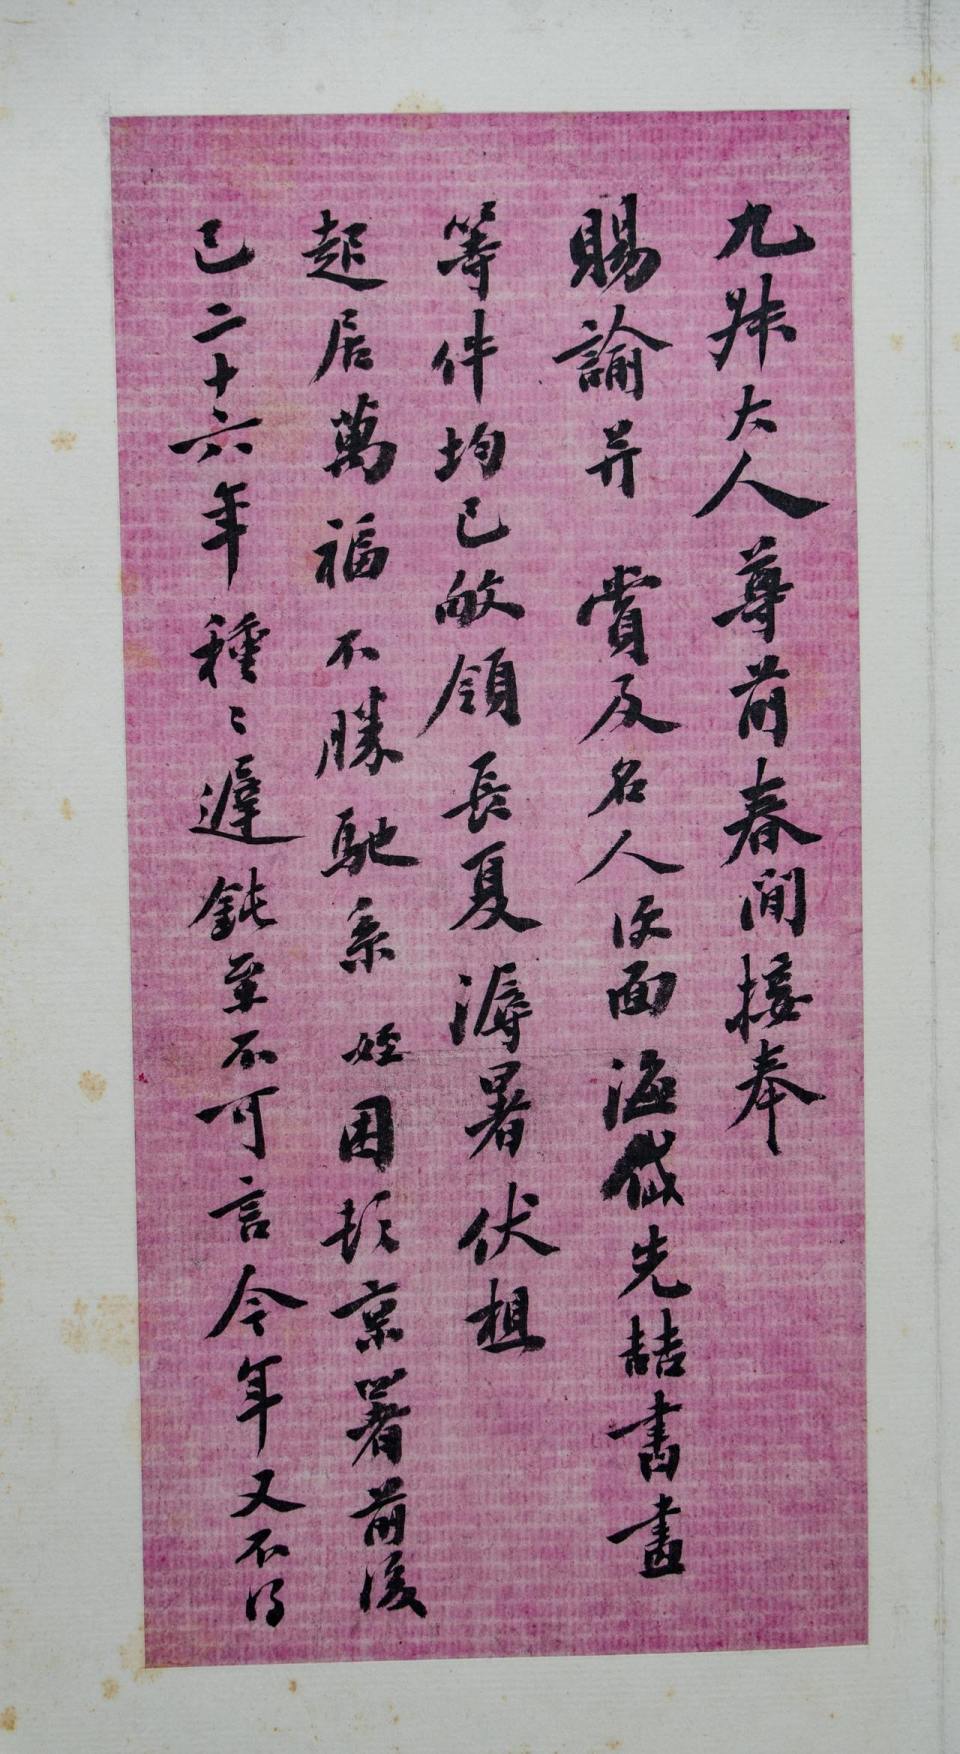 九叔大人尊前春間接奉
賜諭并 賞及名人便面海岱先喆書畫
等件均已敬領長夏溽暑伏想
起居萬福不勝馳系 姪困頓京署前後
已二十六年種〻遲鈍至不可言今年又不得